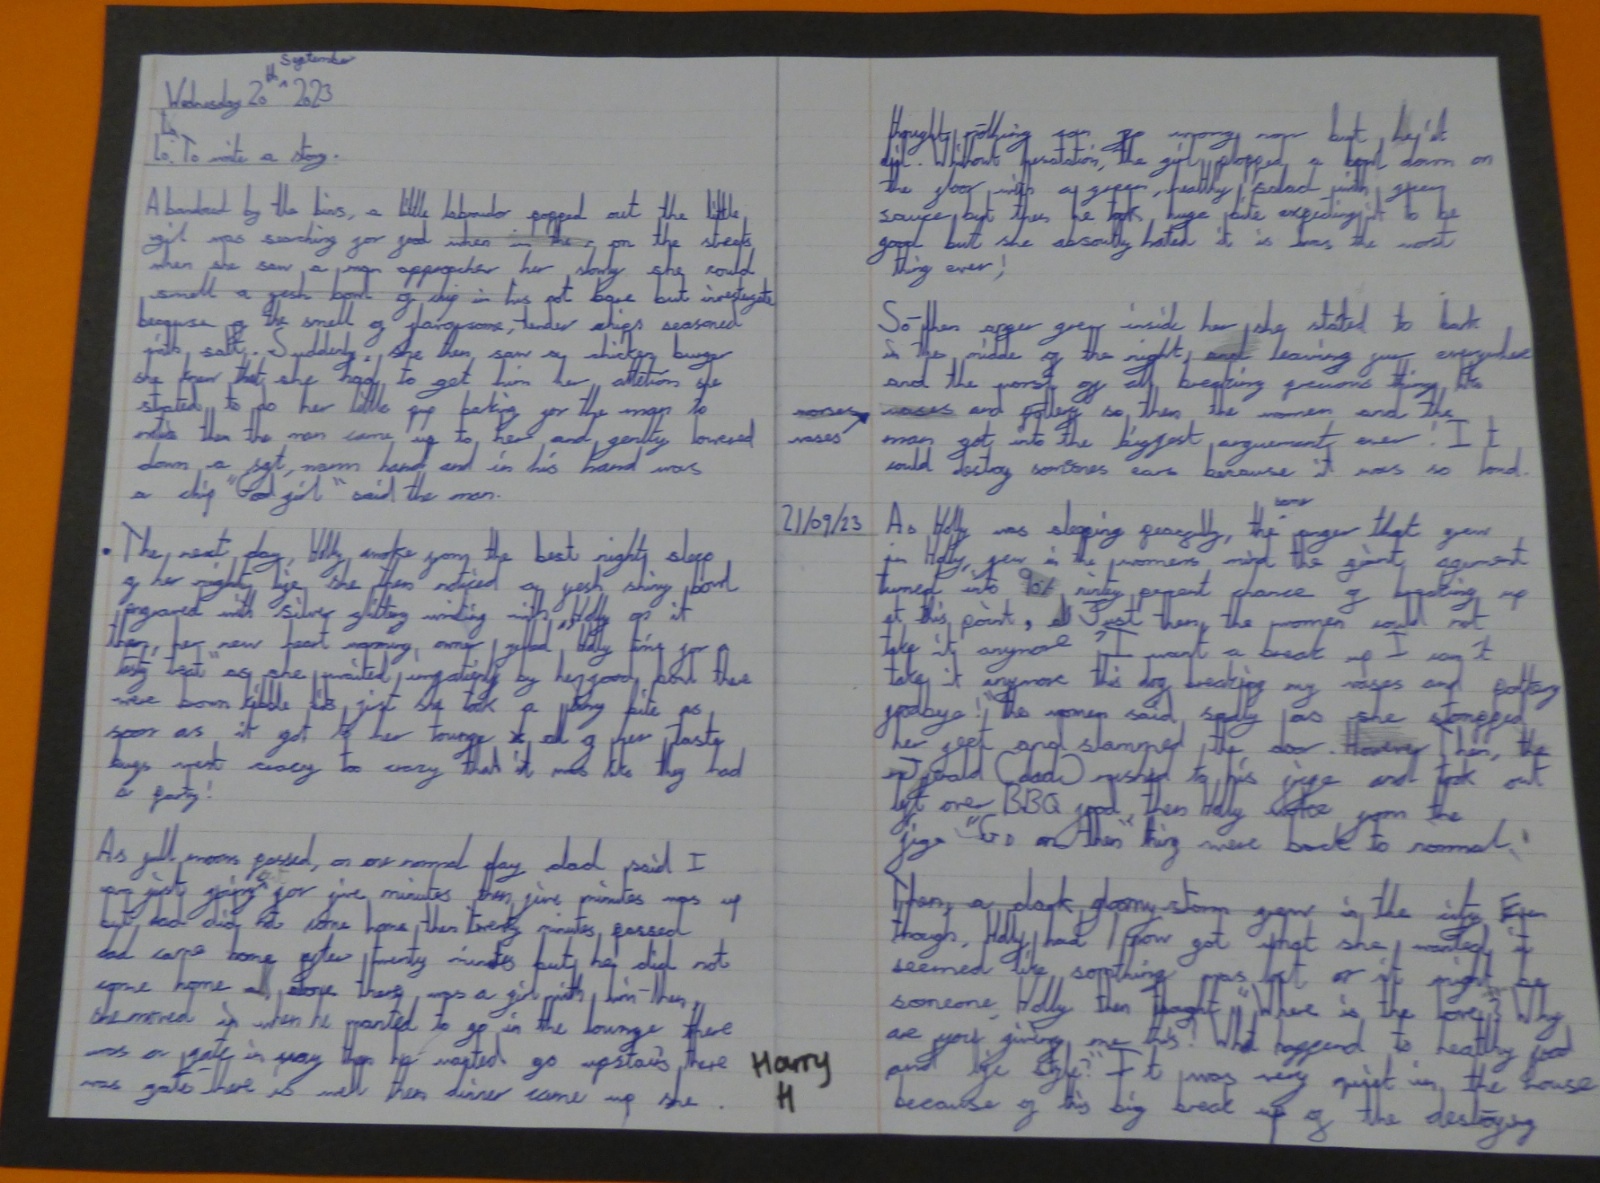 September
Wednesday 20th ^ 2023
Lo
Lo: To write a story.
Abandoned by the bins, a little labrador popped out the little
girl was searching for food when in the on the streets
when she saw a man approacher her slowly she could
smell a fesh bowl of chip in his but investegate
because of the smell of tender chips seasoned
with salt. Suddenly, she then saw a chicken burger
she knew that she had to get him her attetion she
stated to do her little for the man to
then the man came up to her and gently lowered
down a hand and in his hand was
a chip "Good girl" said the man.
The next day, Holly awoke from the best night sleep
of her life she then noticed a fesh shiny bowl
engraved with silver with Holly on it
then, her new heart owner Holly time for a
as she waited by her food and there
were brown kibble she took a bite as
soon as it got to her tounge all of her taste
buds went crazy too crazy that it was like they had
a party!
As full moons passed, on or normal day dad said I
am just going for five minutes then five minutes was up
but dad did not come home then twenty minutes passed
dad came home after twenty minutes but he did not
come home all alone there was a girl with him then,
she moved in when he wanted to go in the lounge there
was a gate in way then he wanted go upstairs there
was gate there is well then dinner came up she.
Harry
H
thought nothing can go wrong now but he'it
did. Without hesatation, the girl plopped a bowl down on
the floor with a green, healthy salad with green
sauce but then he took huge bite expecting it to be
good but she absoutly hated it is was the worst
thing ever!
So then anger grew inside her she stated to bark
in the midde of the night, and leaving fur everywhere
and the worst of all breaking precious thing like
vases
vases and pottery so then the women and the
man got into the biggest arguement ever! It
could destroy someones ears because it was so loud.
21/09/23
same
As Holly was sleeping peacfully, the anger that grew
in Holly, grew in the womens mind the giant agument
turned into 90% ninty pecent chance of breaking up
at this point, Just then, the women could not
take it anymore "I want a break up I can't
take it anymore this dog breaking my vases and pottery
goodbye!" the women said sadly as she stomped
her feet and slammed the door. However Then, the
(dad) rushed to his frige and took out
left over BBQ food then Holly woke from the
frige "Go on then" thing were back to normal!
Then, a dark, gloomy storm grew in the city Even
though, Holly had now got what she wanted, it
seemed like somthing was or it might be
someone, Holly then thought "Where is the love? Why
are you giving me this? What happend to healthy food
and life style?" It was very quiet in the house
because of this big break up of the destoyeg